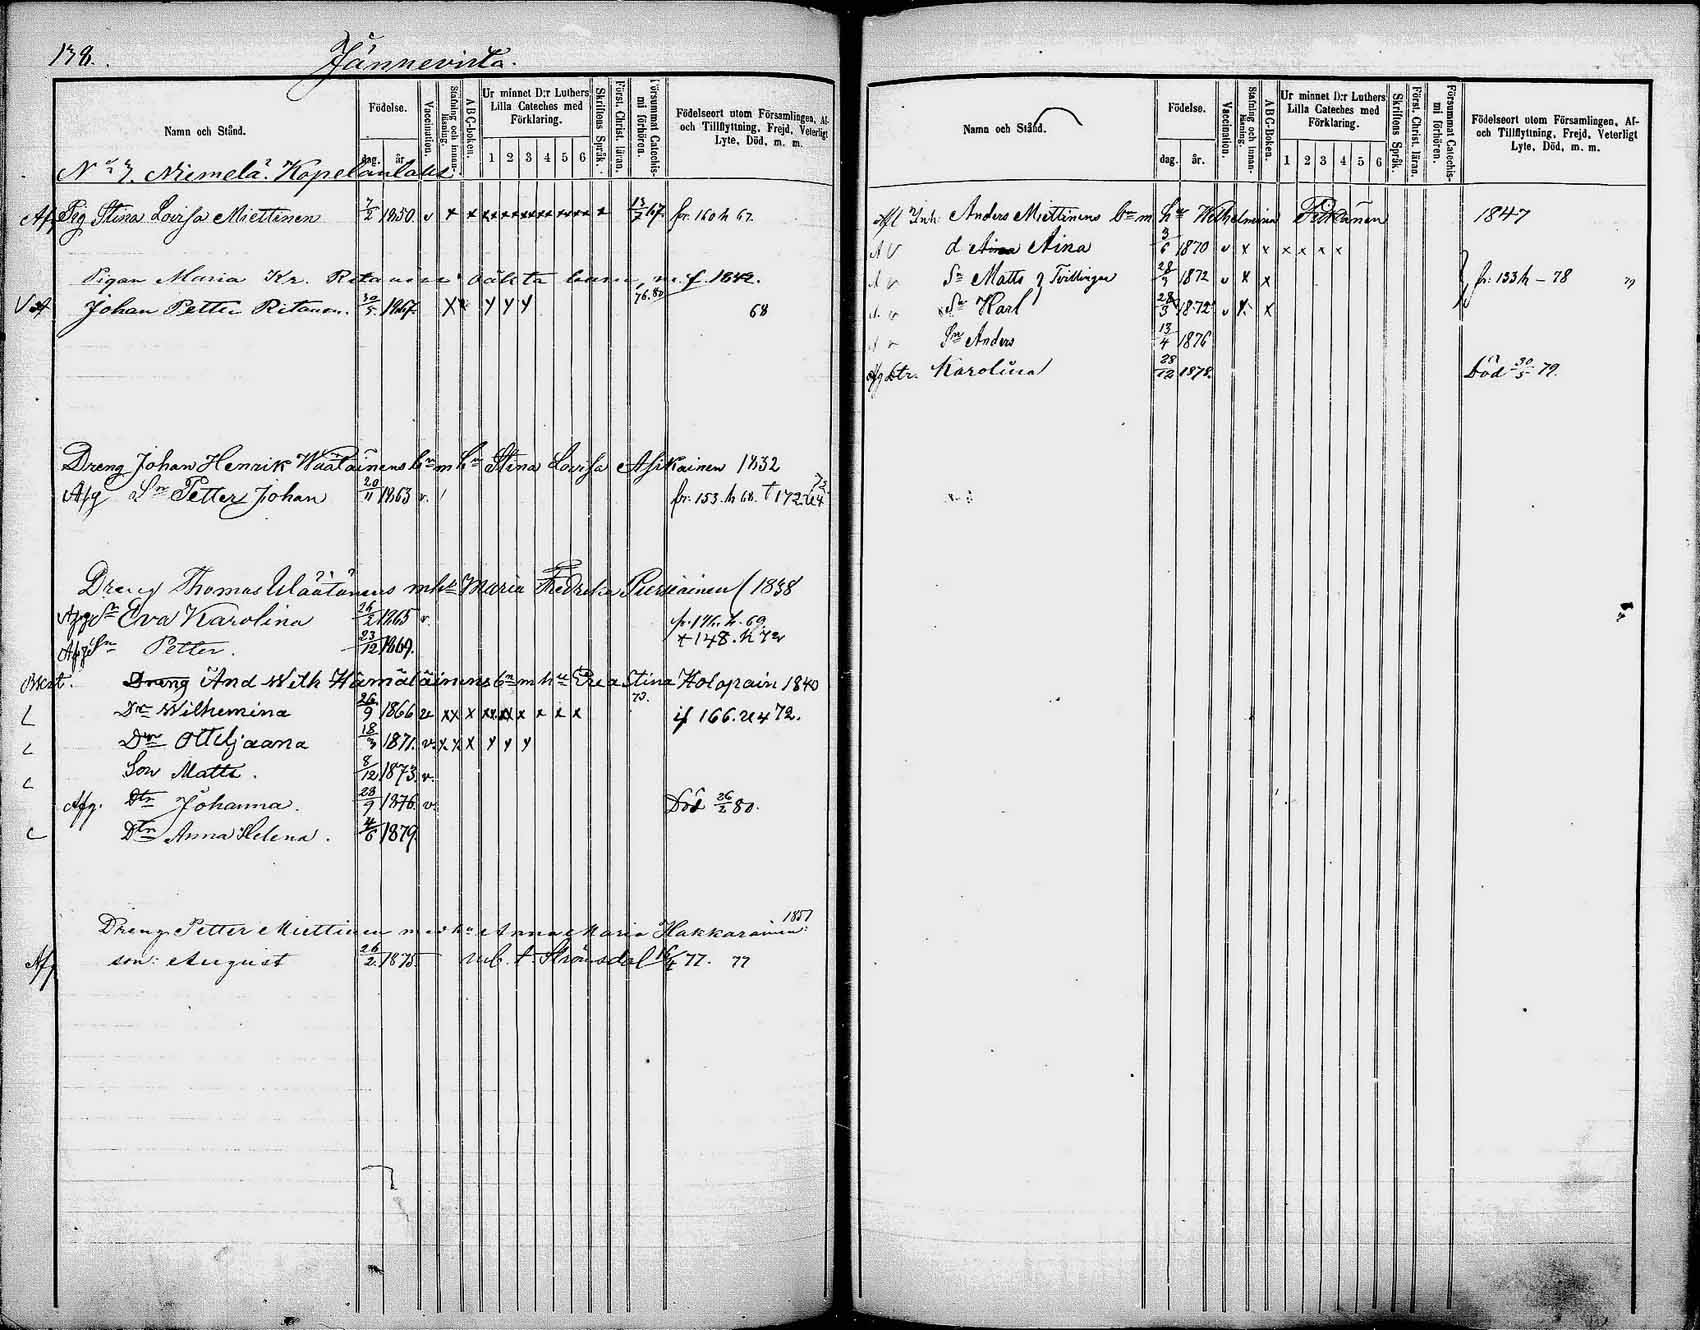 138.
Jännevirta.
Namn och Stånd.
Födelse.
dag.
år
Vaccination.
Stafning och innan-läsning.
A B C-boken.
Ur minnet D:r Luthers Lilla Cateches med Förklaring.
1 2 3 4 5 6
Skriftens Språk.
Först. Christ. läran.
Försummat Catechis-mi förhören.
Födelseort utom Församlingen, Af- och Tillflyttning, Frejd, Veterligt Lyte, Död, m. m.
No 7. Niemelä. Kapellanlaks
Afg Pig Stina Lovisa Miettinen 7/2 1850. v x x x x x x x x x x x x 13/2 67. fr. 160 h 67.
Pigan Maria Kr. Ritanens oäkta barn, f. 1842.
Johan Petter Ritanen. 30/5 1867. X x y y y 76.80 68
Dreng Johan Henrik Wäätäinens bn m hu Stina Lovisa Asikainen 1832
Afg Sn Petter Johan 20/11 1863 v. fr. 153. h 68. † 172.
Dreng Thomas Wäätänens m hu Maria Fredrika (1838
Afg Eva Karolina 26/2 1865 v. fr. 176. h. 69.
Afg Sn Petter. 23/12 1869. 148. h 72
Dreng And With Hämäläinens bn m hu Eva Stina Kolopain 1840
Dr Wilhemina 26/9 1866 v x x x x x x x x x 73. if 166. 72.
Dr Ottiljaana 18/3 1871. v. x x x y y y
Son Matts. 8/12 1873 v.
Afg. Dtr Johanna. 28/9 1876 v. Död 26/2 80.
Dtr Anna Helena. 4/6 1879
Dreng Petter Miettinen med hu Anna Maria Hakkarainen 1851
Afg son: August 26/2 1875 t. Strömsdal 16/4 77. 77
Namn och Stånd.
Födelse.
dag.
år.
Vaccination.
Stafning och innan-läsning.
A B C-boken.
Ur minnet D:r Luthers Lilla Cateches med Förklaring.
1 2 3 4 5 6
Skriftens Språk.
Först. Christ. läran.
Försummat Catechis-mi förhören.
Födelseort utom Församlingen, Af- och Tillflyttning, Frejd, Veterligt Lyte, Död, m. m.
Inh: Anders Miettinens bn m hu Wilhelmina Pitkänen 1847
d Aina 3/6 1870 v x x x x x x
Sn Matts } Tvillingar 28/3 1872 v x x fr. 153 h - 78
Sn Karl 28/3 1872 v x x
Sn Anders 13/4 1876
Afg Dtr. Karolina 28/12 1878. Död 30/5 79.